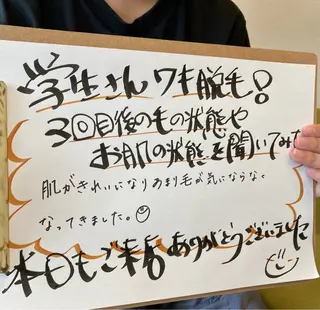 学生さんワキ脱毛!
3回目後の毛の状態や
お肌の状態を聞いてみた
肌がきれいになりあまり毛が気にならなく
なってきました。
本日もご来店ありがとうございました